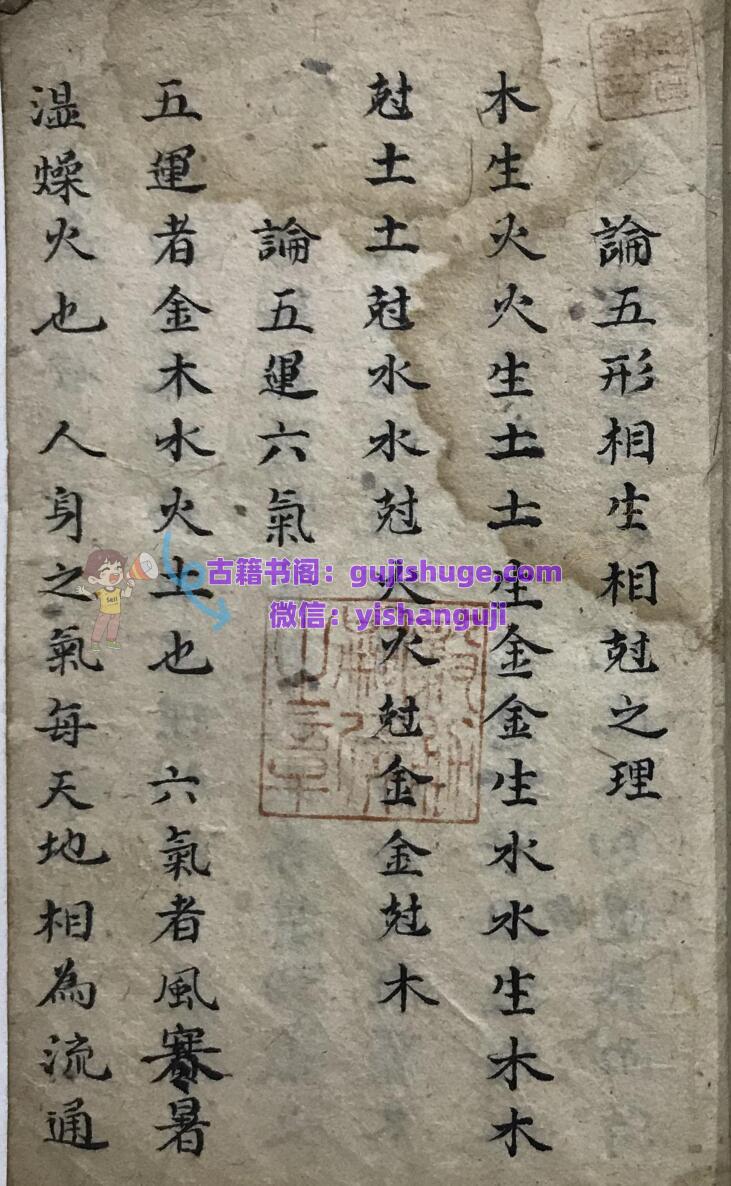 論五形相生相尅之理
木生火火生土土生金金生水水生木木
尅土土尅水水尅火火尅金金尅木
論五運六氣
五運者金木水火土也 六氣者風寒暑
濕燥火也 人身之氣每天地相為流通
古籍书阁：gujishuge.com
微信：yishanguji